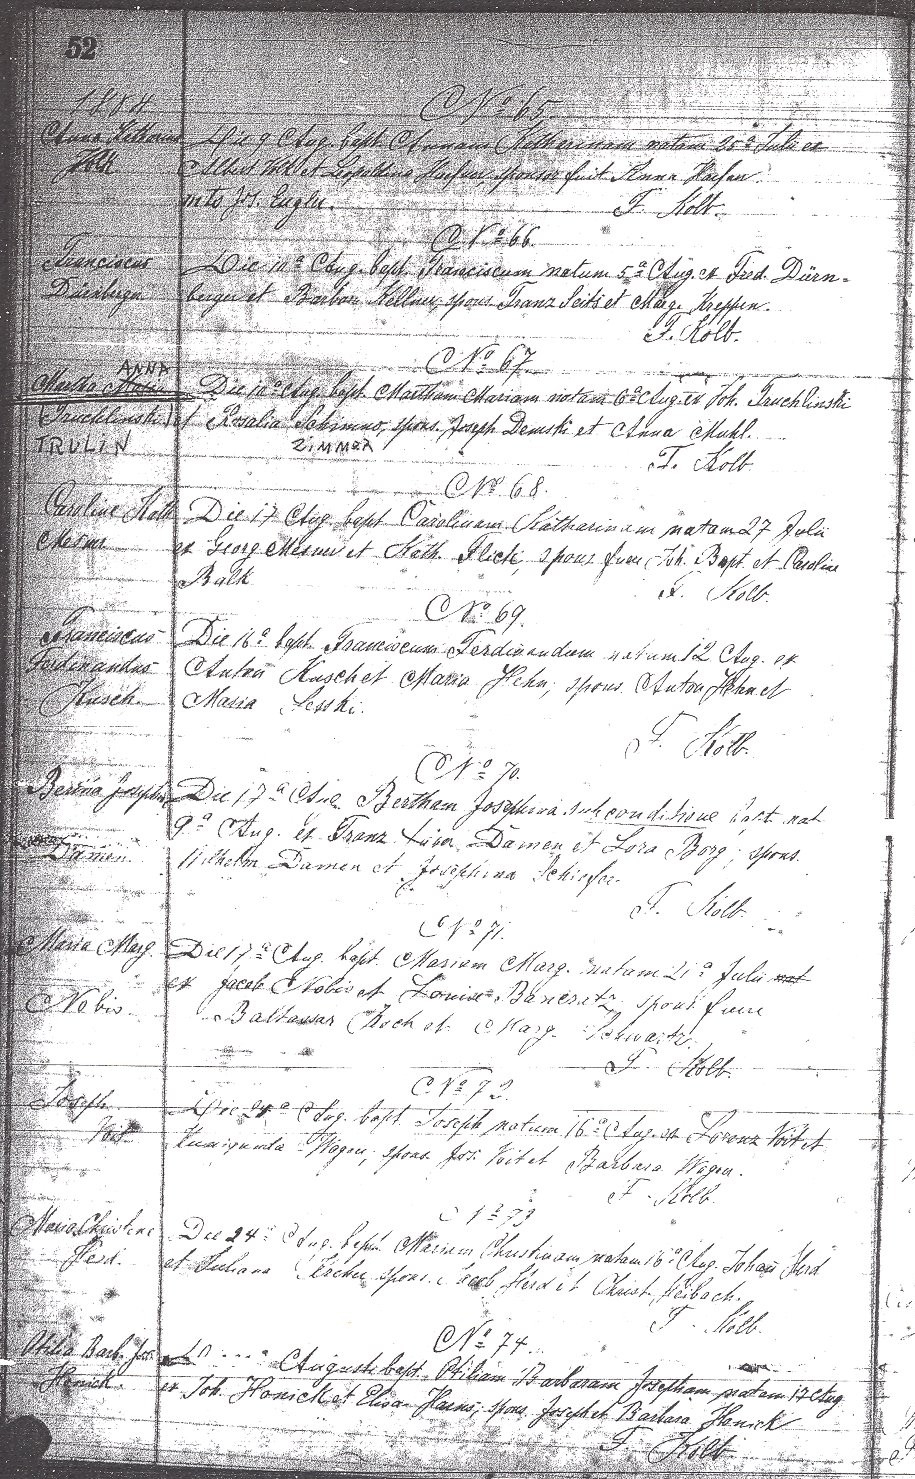 52
1884
No 65.
Anna Katharina
Volk
Die 9 Aug. bapt. Annam Katharinam natam 25a Julii ex
Albert Volk et Leopoldina Hoefen, sponsor fuit Anna Hoefen
F. Kolb.
No 66.
Franciscus
Dürnberger
Die 10a Aug. bapt. Franciscum natum 5a Aug. ex Fred. Dürn-
berger et Barbara Kellner, spons. Franz Seits et Marg.
F. Kolb.
No 67.
ANNA
Martha Maria
(Truchlinski)
TRULIN
Die 10a Aug. bapt. Martham Mariam natam 6a Aug. ex Joh. Truchlinski
et Rosalia Schimmo, spons. Joseph Demski et Anna Muhl.
ZIMMER
F. Kolb
No 68.
Caroline Kath
Die 17 Aug. bapt Carolinam Katharinam natam 27 Julii
ex Georg et Kath. Flick, spons fuere Joh. Bapt. et Caroline
Balk
F. Kolb.
No 69.
Franciscus
Ferdinandus
Kusch.
Die 16a bapt. Franciscum Ferdinandum natum 12 Aug. ex
Anton Kusch et Maria Hehn, spons. Anton Hehn et
Maria Sesski.
F. Kolb.
No 70.
Bertha Josephina
Damen
Die 17a Aug. Bertham Josephina sub conditione bapt. nat
9a Aug. ex Franz Damen et Lora Borg; spons.
Wilhelm Damen et Josephina Schiefer.
F. Kolb
No 71.
Maria Marg.
Nobis.
Die 17a Aug. bapt. Mariam Marg. natam 21a Julii nat
ex Jacob Nobis et Louise spons fuere
Baltassar Koch et Marg. Schwartz.
F. Kolb.
No 72.
Joseph
Voit
Die 24a Aug. bapt Joseph natum 16a Aug. ex Lorenz Voit et
Kunigunda Wagen; spons Jos. Voit et Barbara Wagen.
F. Kolb.
No 73
Maria Christine
Herd.
Die 24a Aug. bapt. Mariam Christinam natam 16a Aug. Johan Herd
et Juliana spons. Jacob Herd et Christ. Heibach.
F. Kolb.
No 74.
Otilia Barb. Jos.
Honick.
Augusti bapt. Otiliam Barbaram Josepham natam 17 Aug
ex Joh. Honick et Elisa Hains; spons. Joseph et Barbara Honick
F. Kolb